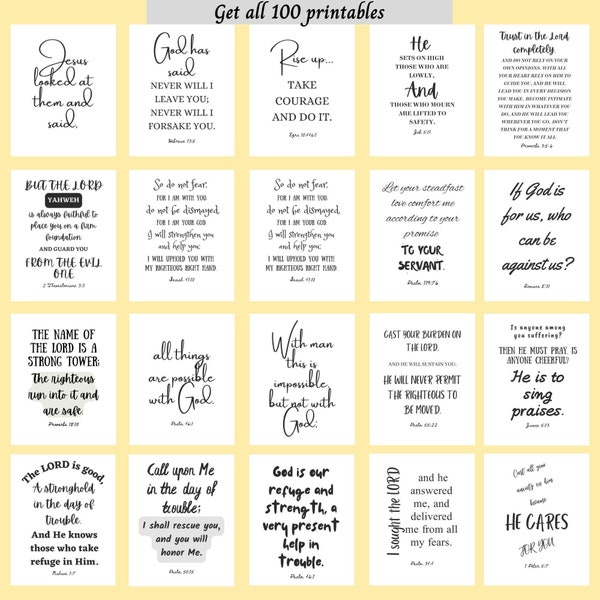 Get all 100 printables
Jesus
looked at
them and
said,
God has
said
NEVER WILL I
LEAVE YOU;
NEVER WILL I
FORSAKE YOU.
Hebrews 13:5
Rise up...
TAKE
COURAGE
AND DO IT.
Ezra 10:4
He
SETS ON HIGH
THOSE WHO ARE
LOWLY,
And
THOSE WHO MOURN
ARE LIFTED TO
SAFETY.
Job 5:11
Trust in the Lord
completely,
AND DO NOT RELY ON YOUR
OWN OPINIONS. WITH ALL
YOUR HEART RELY ON HIM TO
GUIDE YOU, AND HE WILL
LEAD YOU IN EVERY DECISION
YOU MAKE. BECOME INTIMATE
WITH HIM IN WHATEVER YOU
DO, AND HE WILL LEAD YOU
WHEREVER YOU GO. DON'T
THINK FOR A MOMENT THAT
YOU KNOW IT ALL
Proverbs 3:5-6
BUT THE LORD
YAHWEH
is always faithful to
place you on a firm
foundation
AND GUARD YOU
FROM THE EVIL
ONE
2 Thessalonians 3:3
So do not fear,
FOR I AM WITH YOU;
do not be dismayed,
FOR I AM YOUR GOD.
I will strengthen you
and help you;
I WILL UPHOLD YOU WITH
MY RIGHTEOUS RIGHT HAND.
So do not fear,
FOR I AM WITH YOU;
do not be dismayed,
FOR I AM YOUR GOD.
I will strengthen you
and help you;
I WILL UPHOLD YOU WITH
MY RIGHTEOUS RIGHT HAND.
Let your steadfast
love comfort me
according to your
promise
TO YOUR
SERVANT.
Psalm, 119:76
If God is
for us, who
can be
against us?
Romans 8:31
THE NAME OF
THE LORD IS A
STRONG TOWER;
The righteous
run into it and
are safe.
Proverbs 18:10
all things
are possible
with God.
With man
this is
impossible,
but not with
God;
CAST YOUR BURDEN ON
THE LORD,
AND HE WILL SUSTAIN YOU;
HE WILL NEVER PERMIT
THE RIGHTEOUS TO
BE MOVED.
Psalm, 55:22
Is anyone among
you suffering?
THEN HE MUST PRAY. IS
ANYONE CHEERFUL?
He is to
sing
praises.
James 5:13
The LORD is good,
A stronghold
in the day of
trouble.
And He knows
those who take
refuge in Him.
Nahum 1:7
Call upon Me
in the day of
trouble;
I shall rescue you,
and you will
honor Me.
Psalm, 50:15
God is our
refuge and
strength, a
very present
help in
trouble.
Psalm, 46:1
I sought the LORD
and he
answered
me, and
delivered
me from all
my fears.
Psalm, 34:4
Cast all your
anxiety on him
because
HE CARES
FOR YOU
1 Peter, 5:7